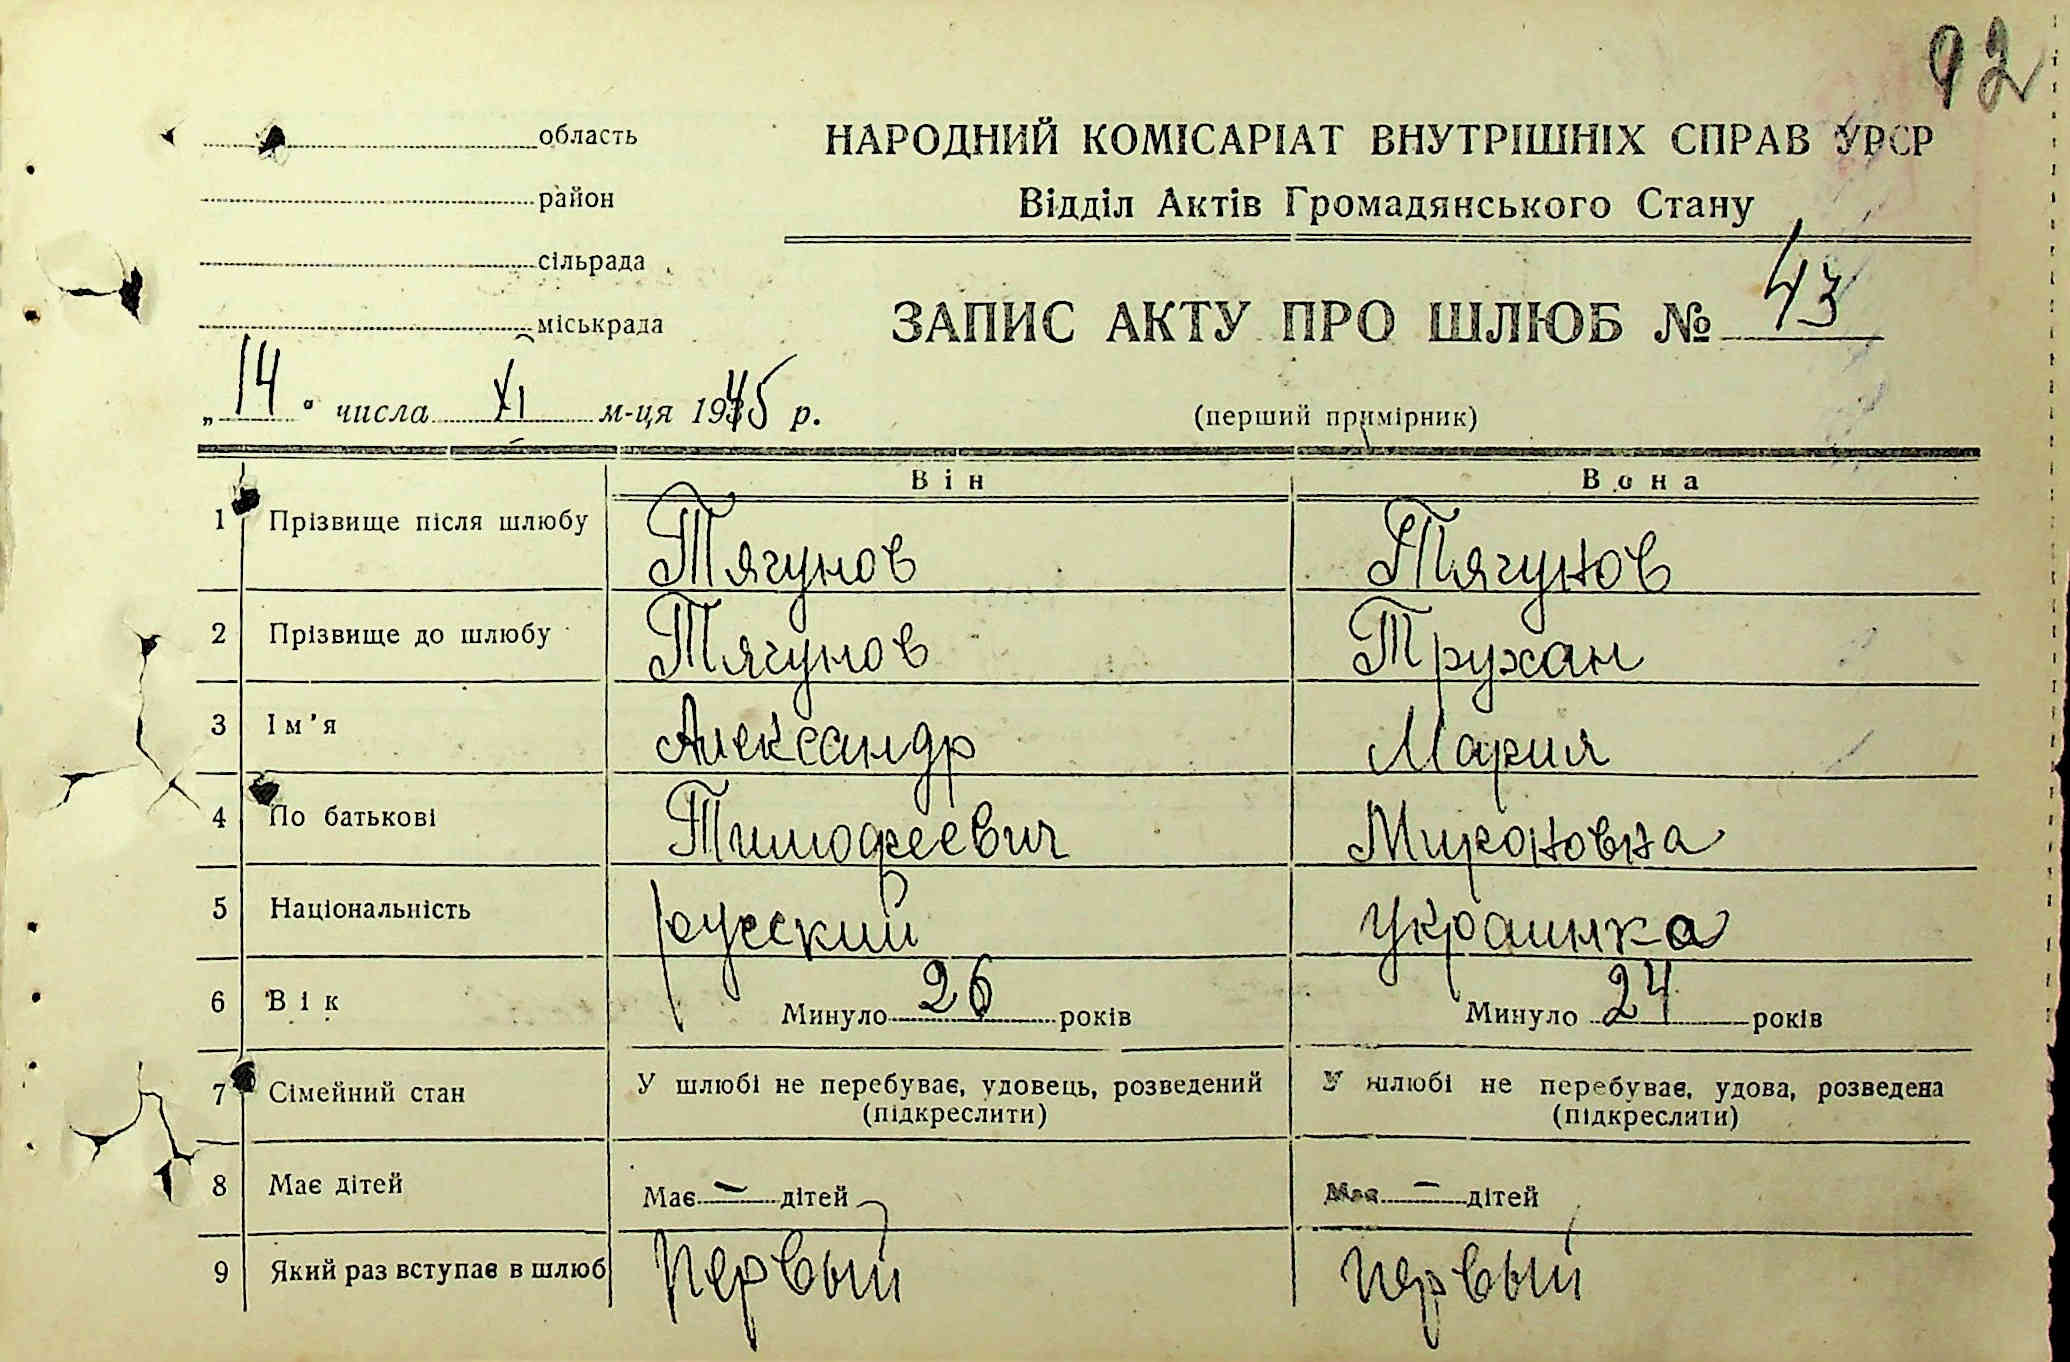 92
область
район
сільрада
міськрада
НАРОДНИЙ КОМІСАРІАТ ВНУТРІШНІХ СПРАВ УРСР
Відділ Актів Громадянського Стану
ЗАПИС АКТУ ПРО ШЛЮБ № 43
„14" числа XI м-ця 1945 р.
(перший примірник)
Він Вона
1 Прізвище після шлюбу Тягунов Тягунов
2 Прізвище до шлюбу Тягунов Трухан
3 Ім'я Александр Мария
4 По батькові Тимофеевич Мироновна
5 Національність русский украинка
6 Вік Минуло 26 років Минуло 24 років
7 Сімейний стан У шлюбі не перебуває, удовець, розведений У шлюбі не перебуває, удова, розведена
(підкреслити) (підкреслити)
8 Має дітей Має — дітей Має — дітей
9 Який раз вступає в шлюб первый первый